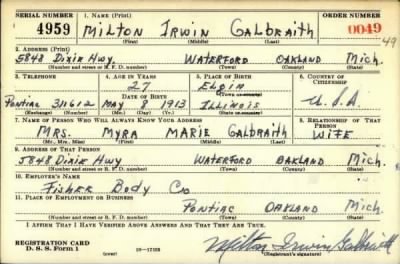 SERIAL NUMBER 1. NAME (Print) ORDER NUMBER
4959 MILTON IRWIN GALBRAITH 0049 49
(First) (Middle) (Last)
2. ADDRESS (Print)
5848 Dixie Hwy. WATERFORD OAKLAND Mich.
(Number and street or R. F. D. number) (Town) (County) (State)
3. TELEPHONE 4. AGE IN YEARS 5. PLACE OF BIRTH 6. COUNTRY OF CITIZENSHIP
27 ELGIN
DATE OF BIRTH (Town or county)
Pontiac 311612 MAY 8 1913 ILLINOIS U.S.A
(Exchange) (Number) (Mo.) (Day) (Yr.) (State or country)
7. NAME OF PERSON WHO WILL ALWAYS KNOW YOUR ADDRESS 8. RELATIONSHIP OF THAT PERSON
MRS. MYRA MARIE GALBRAITH WIFE
(Mr., Mrs., Miss) (First) (Middle) (Last)
9. ADDRESS OF THAT PERSON
5848 Dixie Hwy WATERFORD OAKLAND Mich.
(Number and street or R. F. D. number) (Town) (County) (State)
10. EMPLOYER'S NAME
Fisher Body Co
11. PLACE OF EMPLOYMENT OR BUSINESS
Pontiac OAKLAND Mich.
(Number and street or R. F. D. number) (Town) (County) (State)
I AFFIRM THAT I HAVE VERIFIED ABOVE ANSWERS AND THAT THEY ARE TRUE.
REGISTRATION CARD
D. S. S. Form 1 Milton Irwin Galbraith
(Registrant's signature)